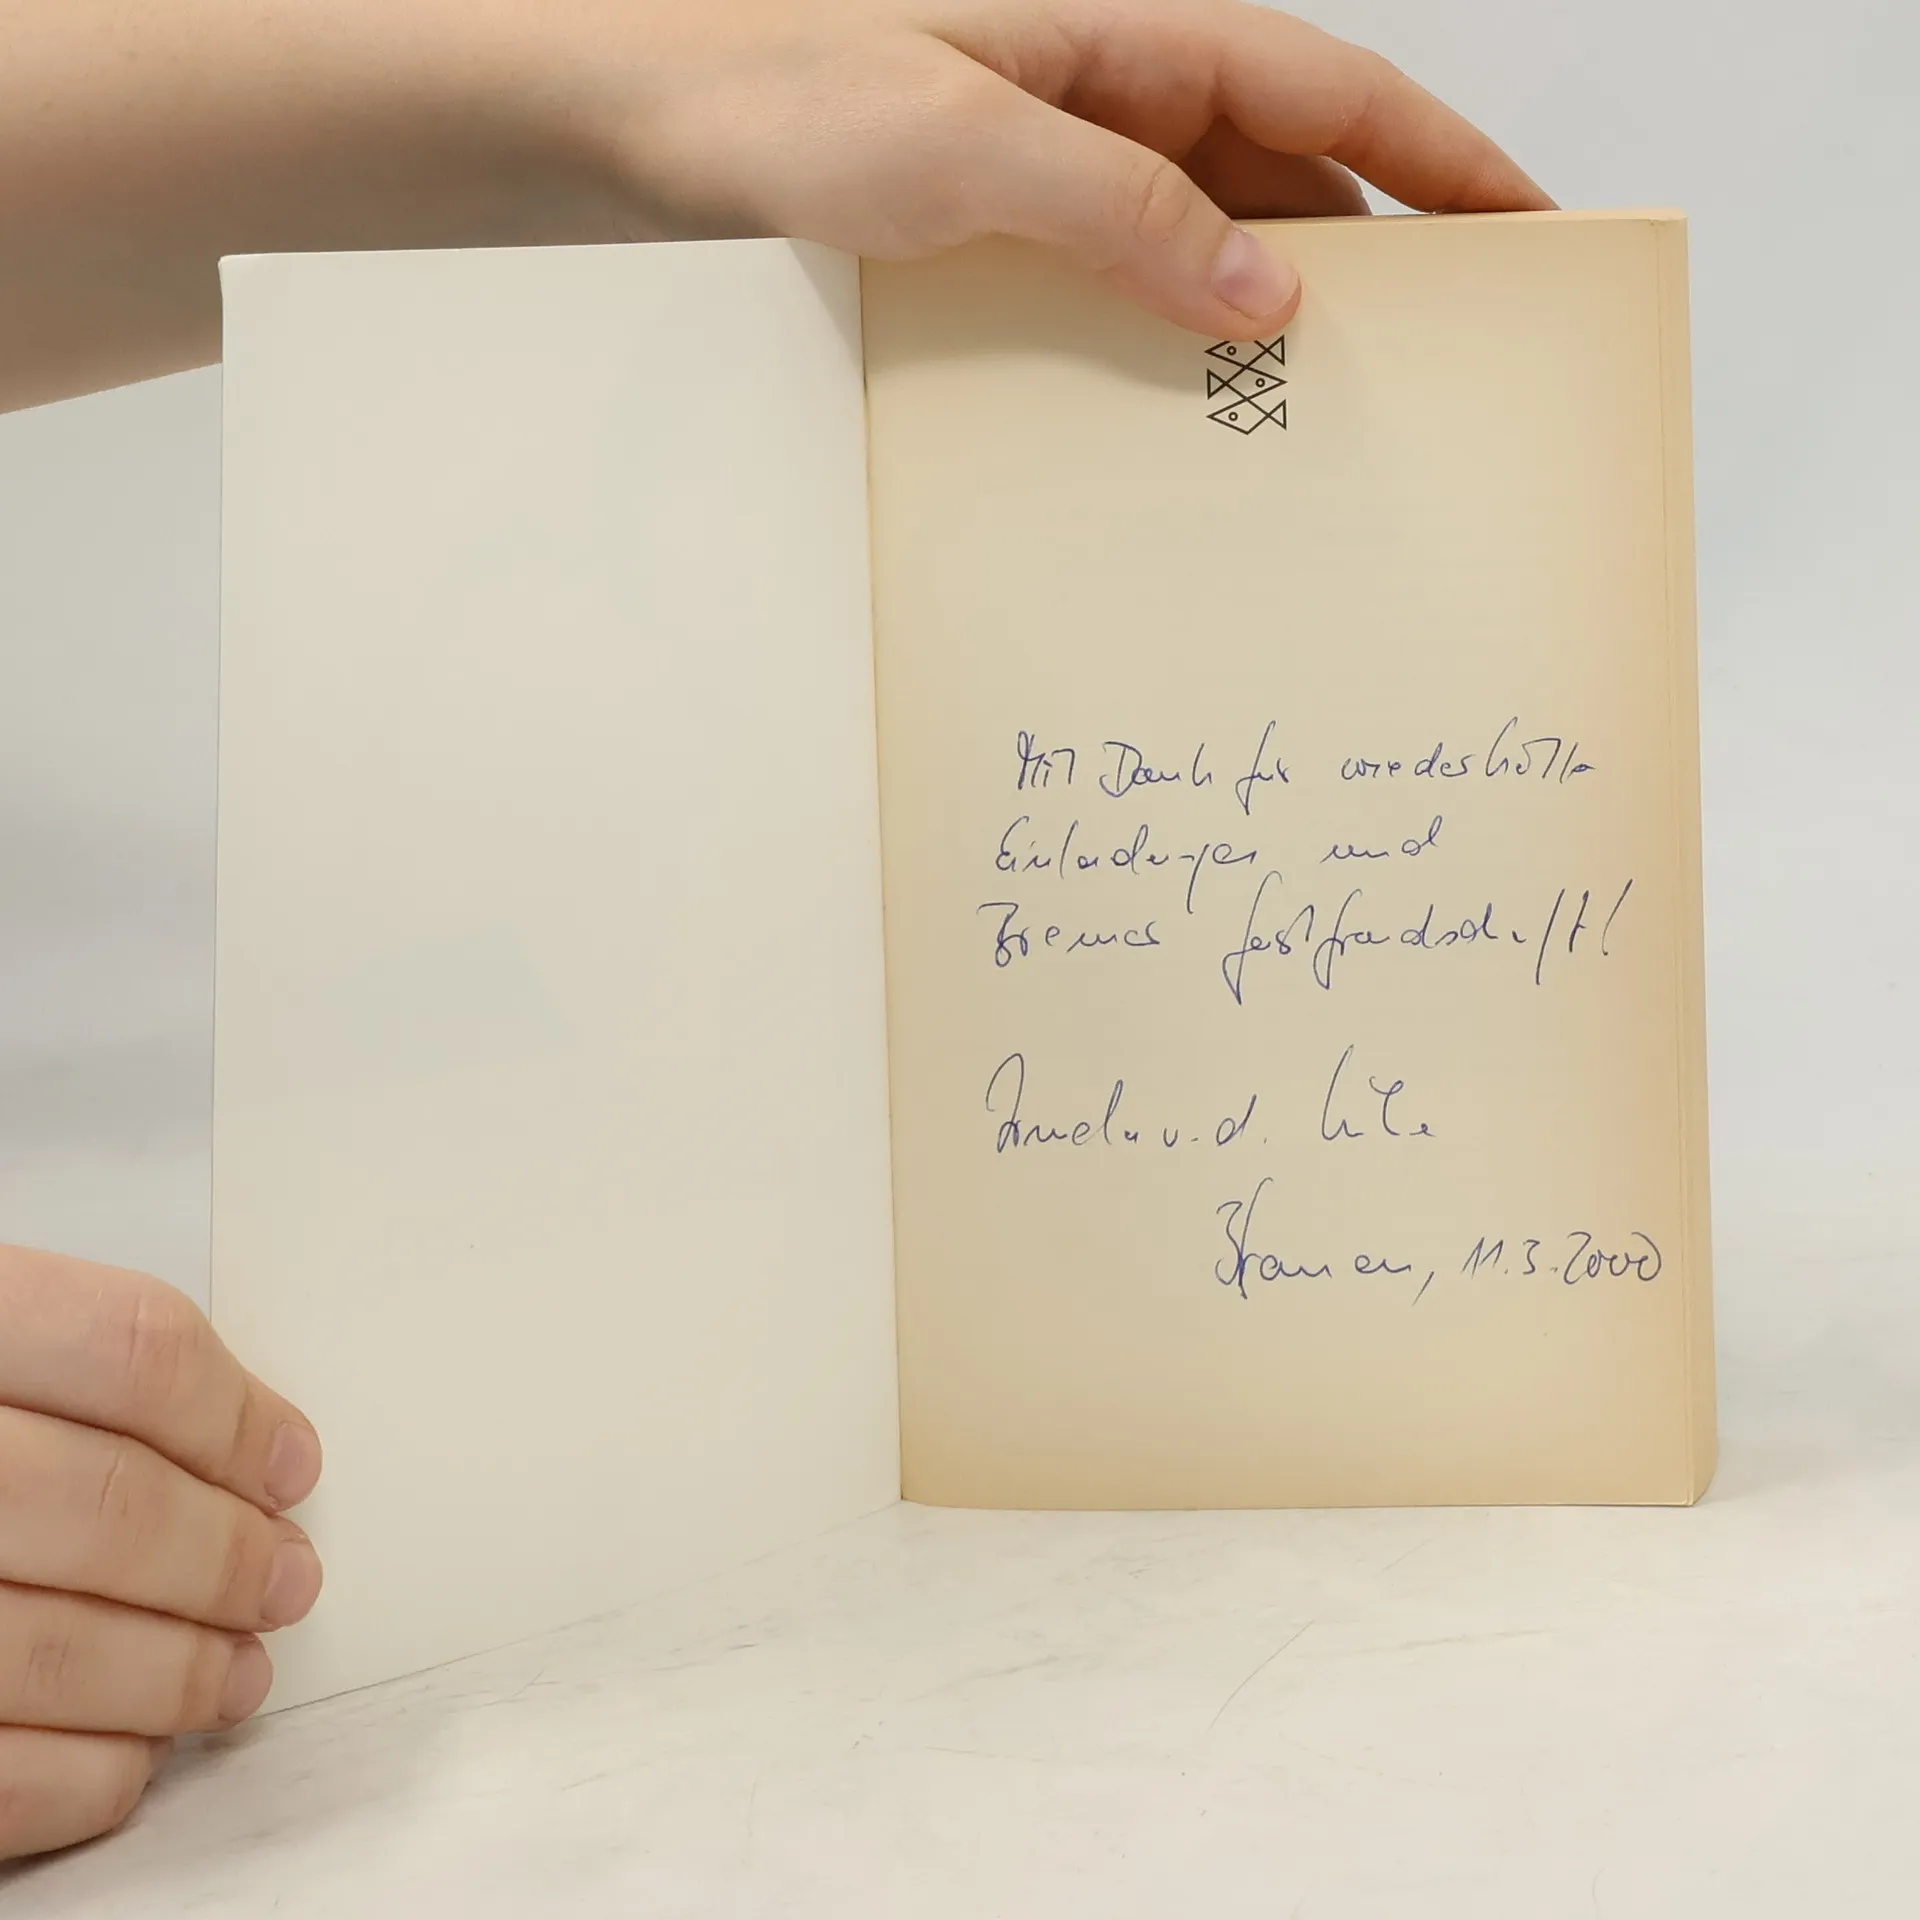 Mit Dank für wiederholte
Einladungen und
Bremer Gastfreundschaft!
Irmela v. d. Lühe
Bremen, 11.3.2000